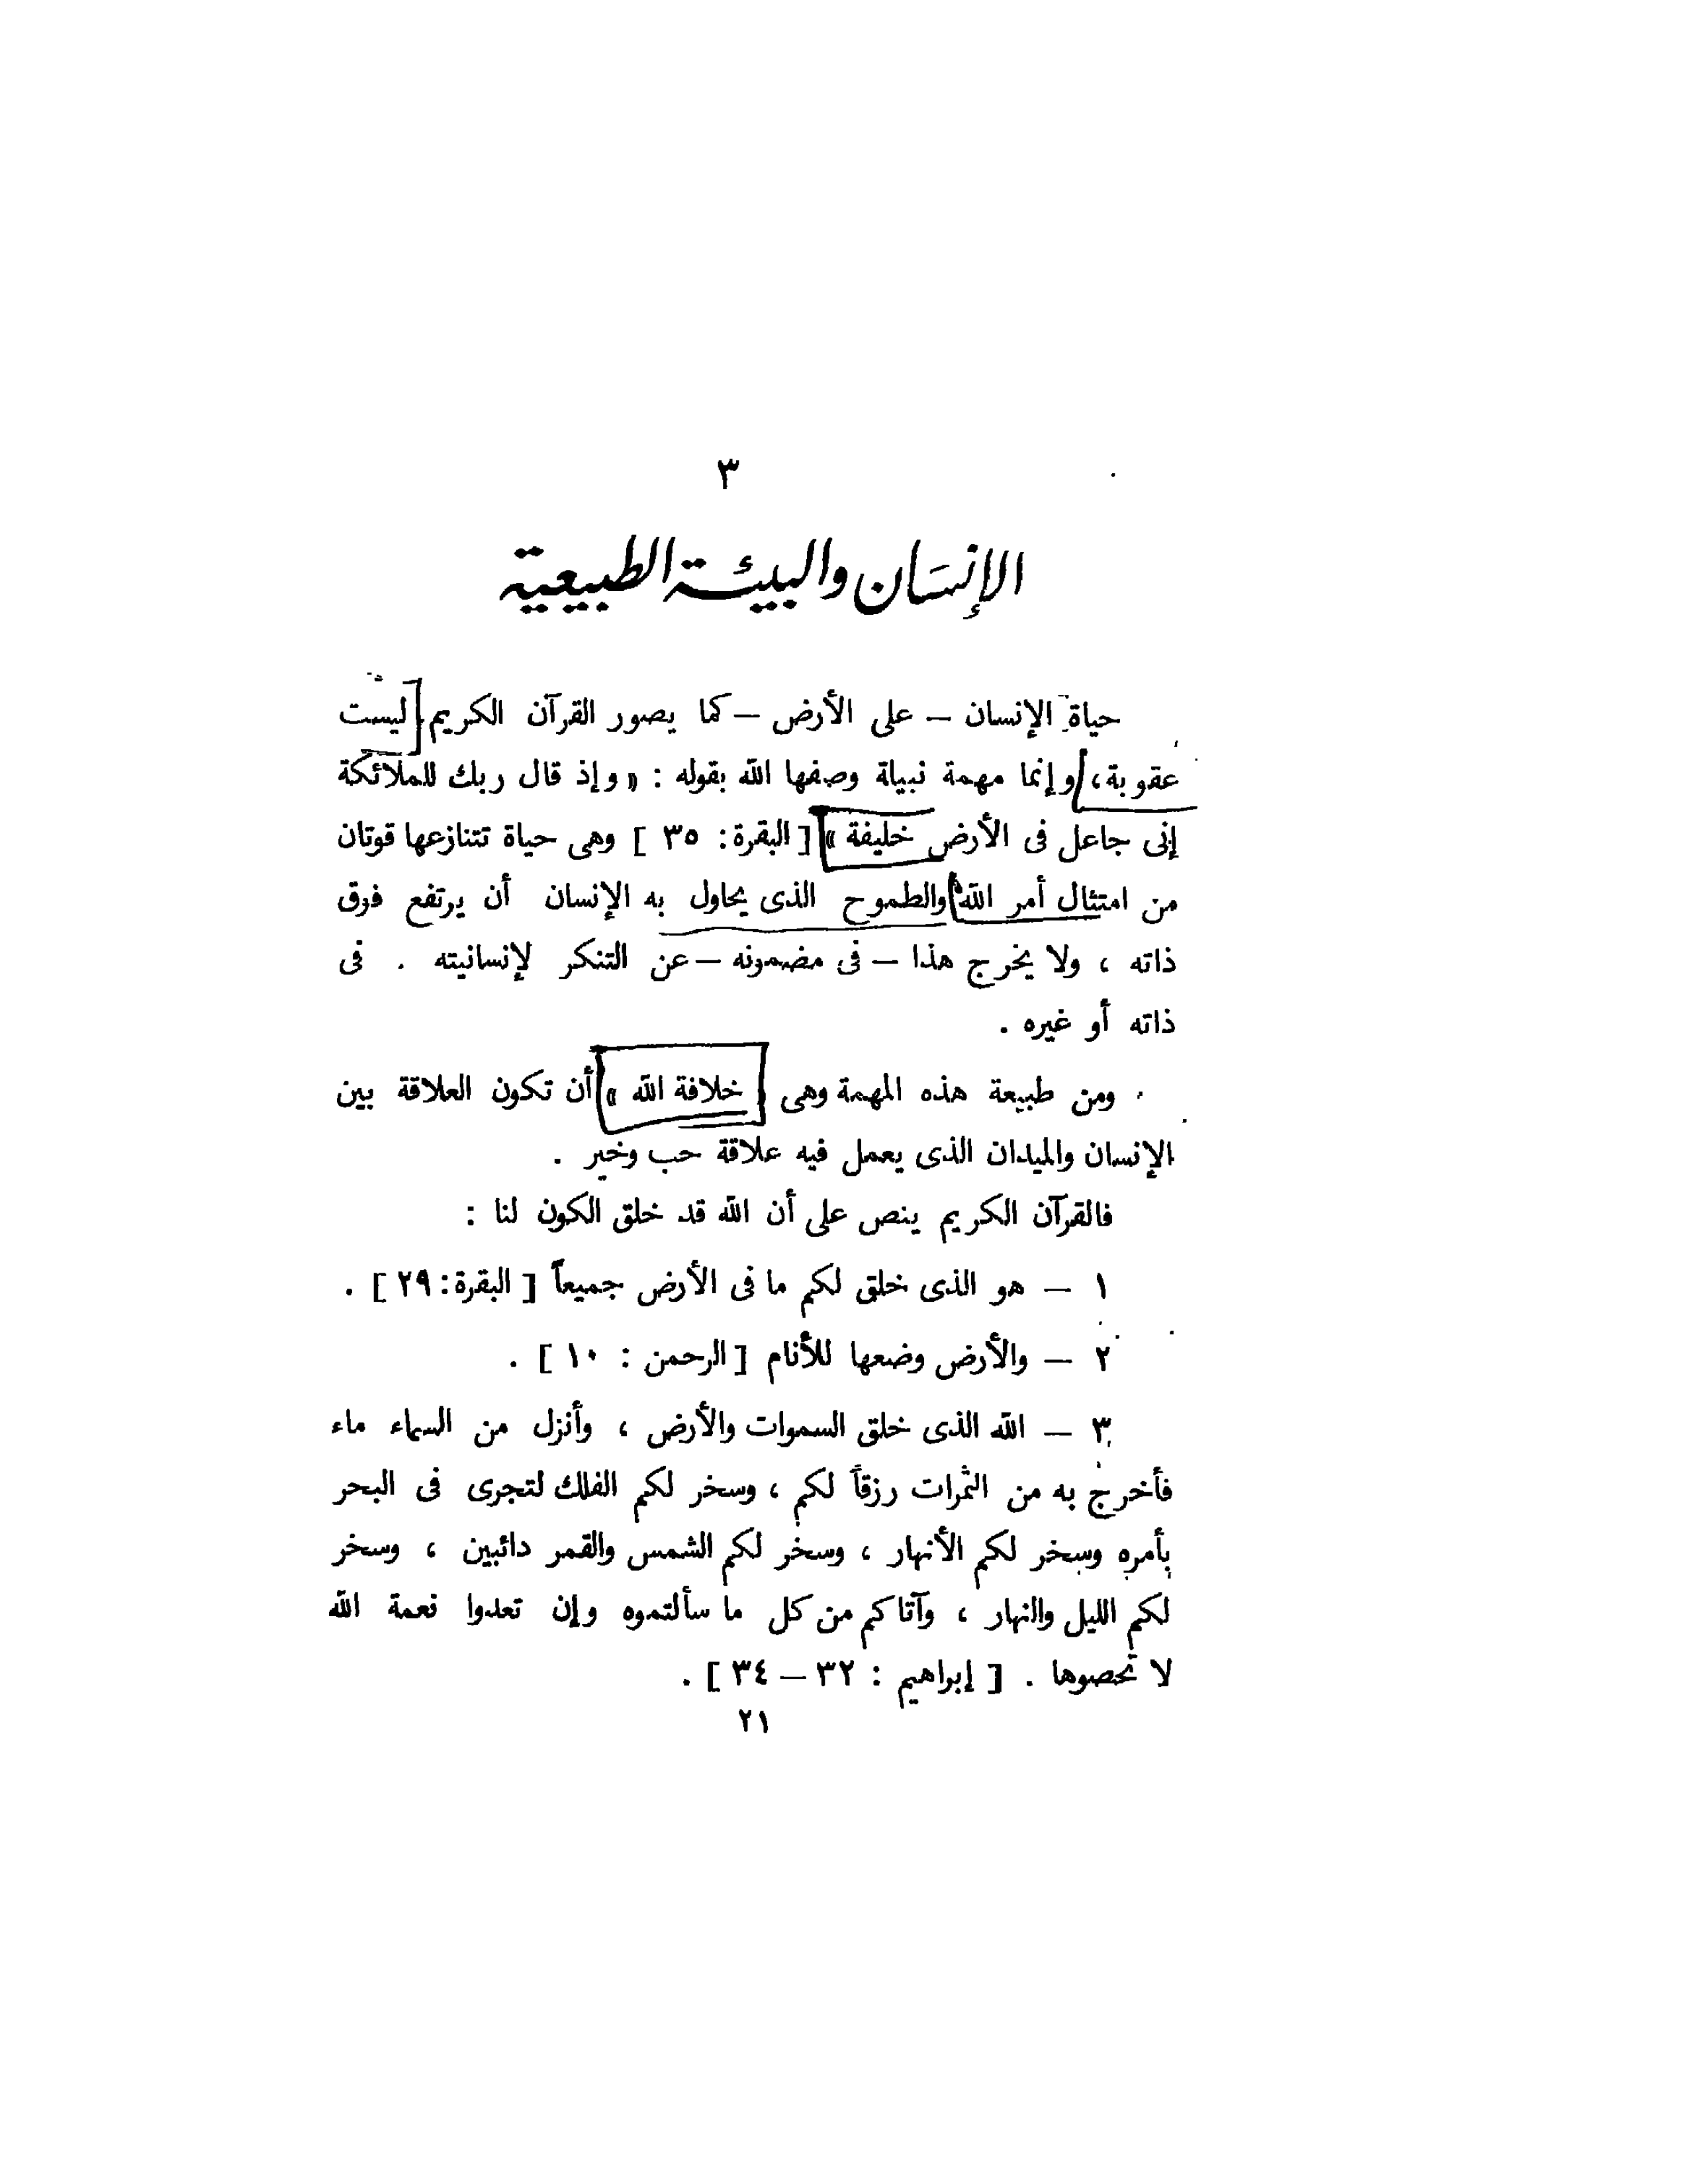 ٣
الإنسَان والبيئة الطبيعية
حياة الإنسان – على الأرض – كما يصور القرآن الكريم ليست
عقوبة ، وإنما مهمة نبيلة وصفها الله بقوله : « وإذ قال ربك للملائكة
إنى جاعل فى الأرض خليفة » [ البقرة : ٣٥ ] وهى حياة تتنازعها قوتان
من امتثال أمر الله والطموح الذى يحاول به الإنسان أن يرتفع فوق
ذاته ، ولا يخرج هذا – فى مضمونه – عن التنكر لإنسانيته . فى
ذاته أو غيره .
ومن طبيعة هذه المهمة وهى « خلافة الله » أن تكون العلاقة بين
الإنسان والميدان الذى يعمل فيه علاقة حب وخير .
فالقرآن الكريم ينص على أن الله قد خلق الكون لنا :
١ – هو الذى خلق لكم ما فى الأرض جميعاً [ البقرة : ٢٩ ] .
٢ – والأرض وضعها للأنام [ الرحمن : ١٠ ] .
٣ – الله الذى خلق السموات والأرض ، وأنزل من السماء ماء
فأخرج به من الثمرات رزقاً لكم ، وسخر لكم الفلك لتجرى فى البحر
بأمره وسخر لكم الأنهار ، وسخر لكم الشمس والقمر دائبين ، وسخر
لكم الليل والنهار ، وآتاكم من كل ما سألتموه وإن تعدوا نعمة الله
لا تحصوها . [ إبراهيم : ٣٢ – ٣٤ ] .
٢١